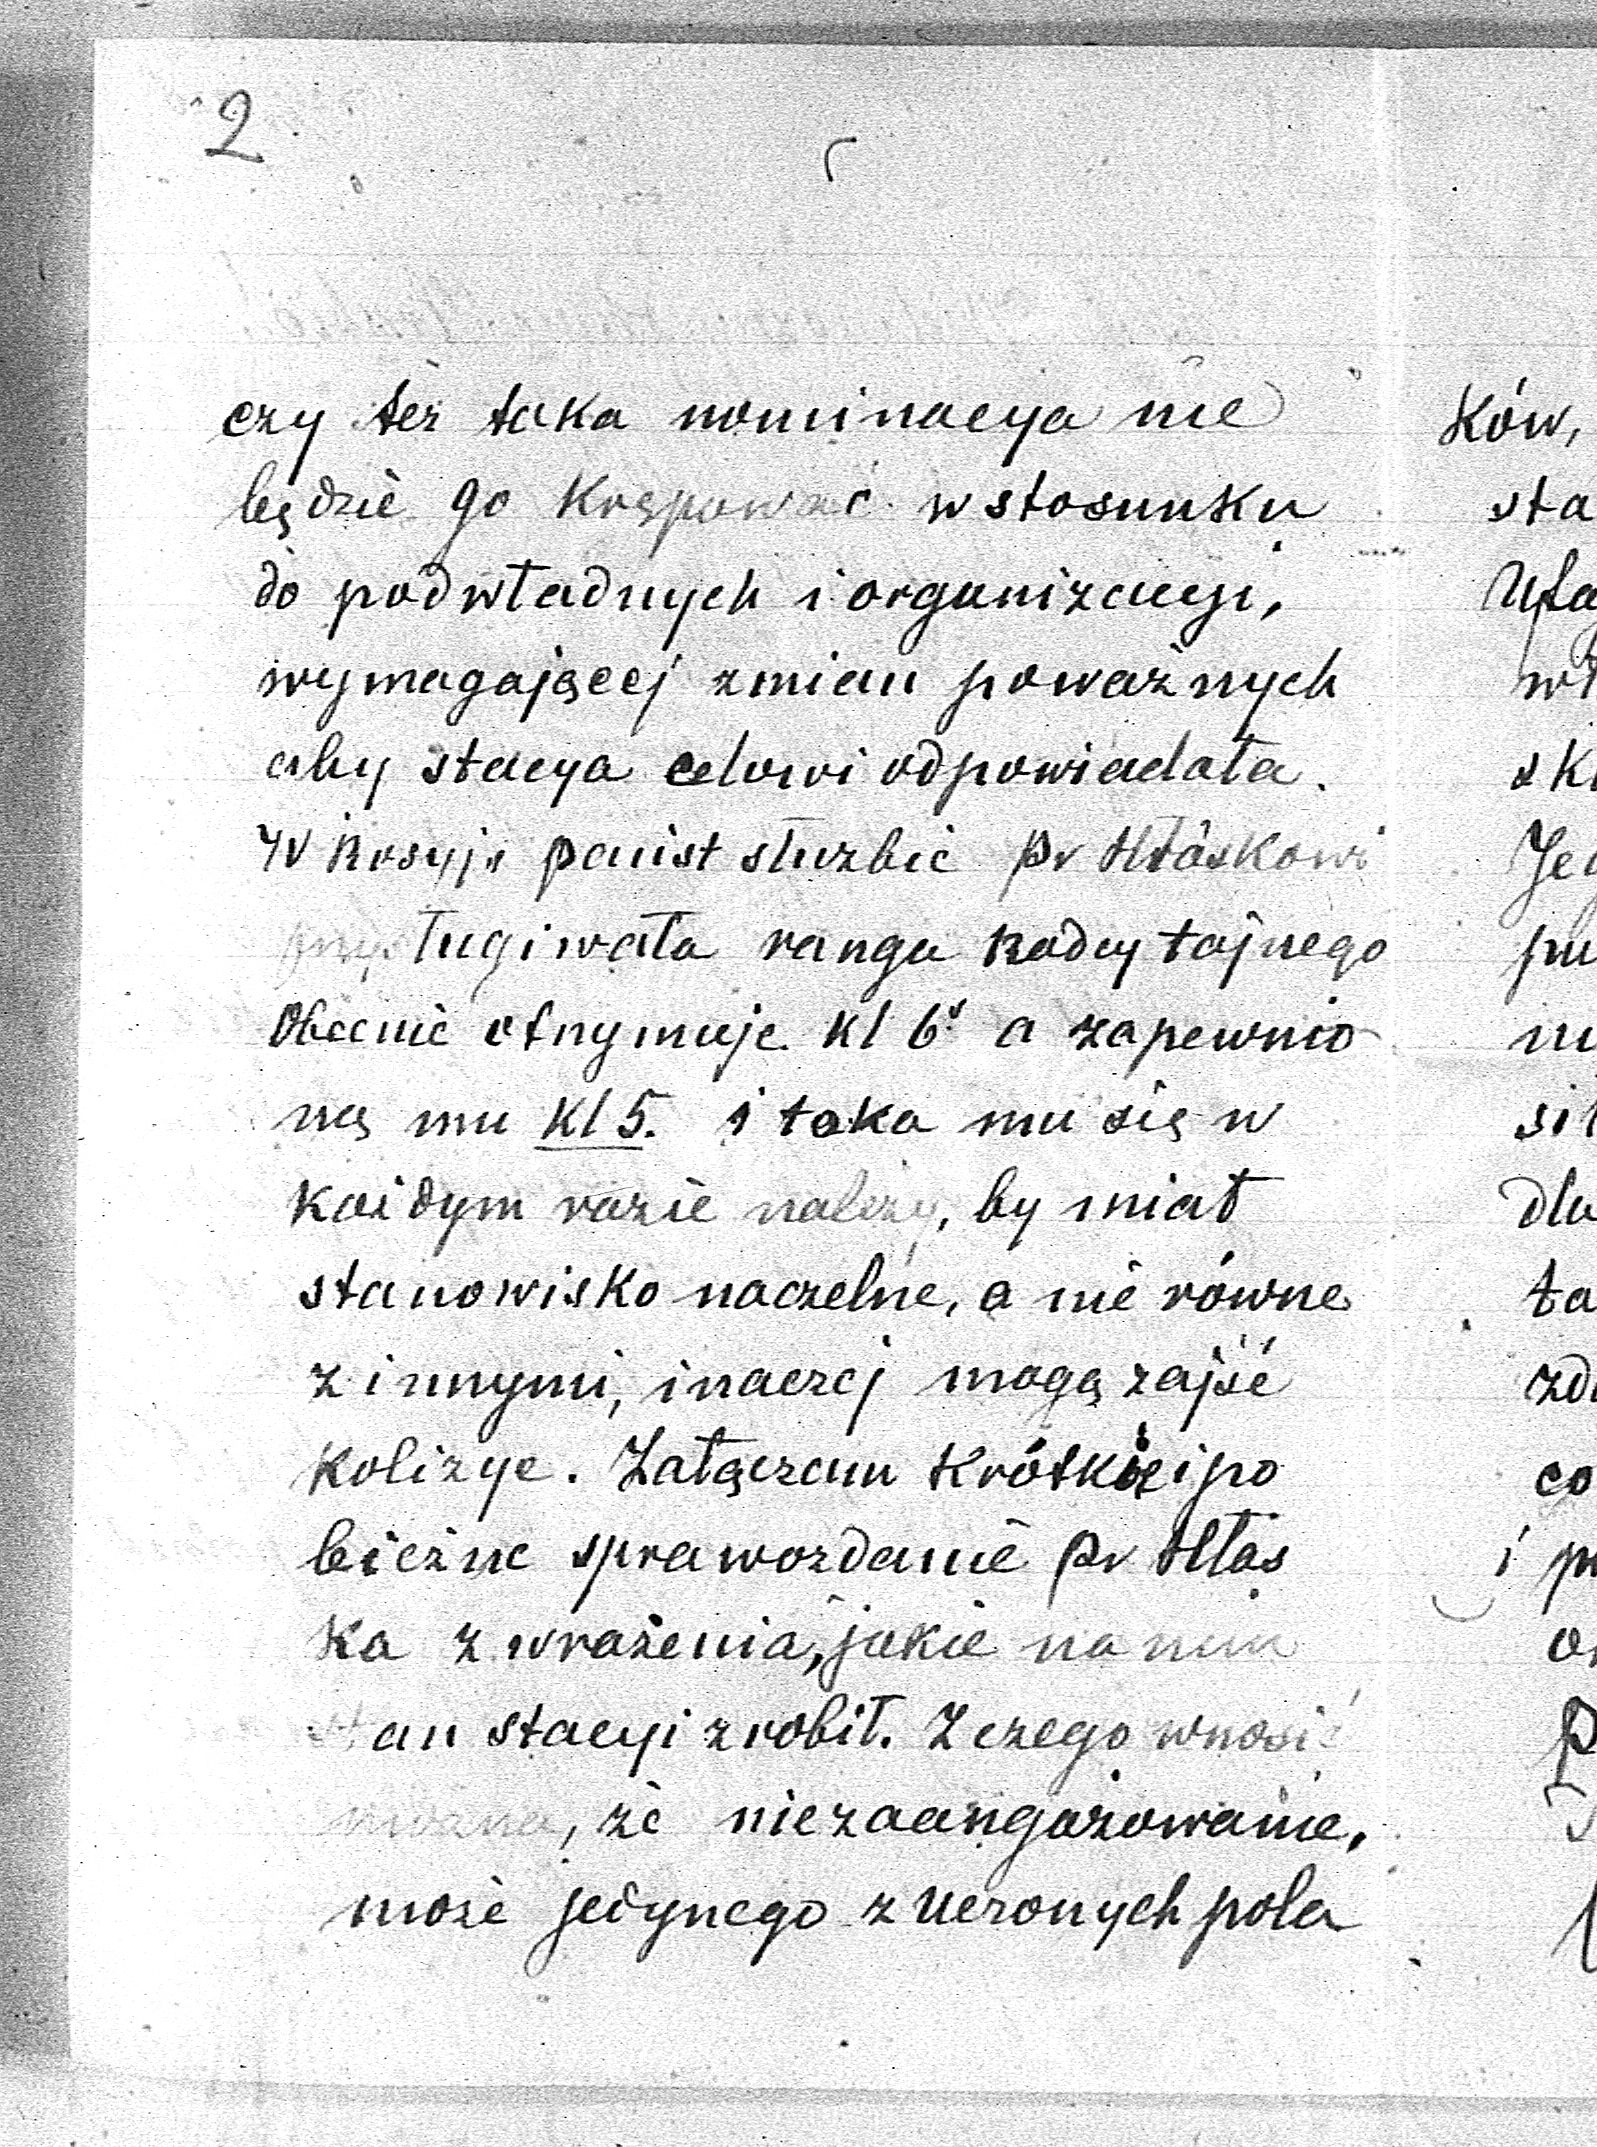 2
czy też taka nominacya nie
będzie go krępować w stosunku
do podwładnych i organizacyi,
wymagającej zmian poważnych
aby stacya celowi odpowiadała.
W Rosyji państ służbie Pr Hłaskowi
przysługiwała ranga Radcy tajnego
Obecnie otrzymuje kl 6 a zapewnio
ną mu kl 5. i taka mu się w
każdym razie należy, by miał
stanowisko naczelne, a nie równe
z innymi, inaczej mogą zajść
kolizye. Załączam krótkie i po
bieżne sprawozdanie Pr Hłas
ka z wrażenia, jakie na nim
stan stacyi zrobił. Z czego wnosić
można, że niezaangażowanie,
może jedynego z uczonych pola
ków,
sta
Ufa
wł
sk
Jeg
pu
ni
sił
dla
ta
zd
co
i p
o
P